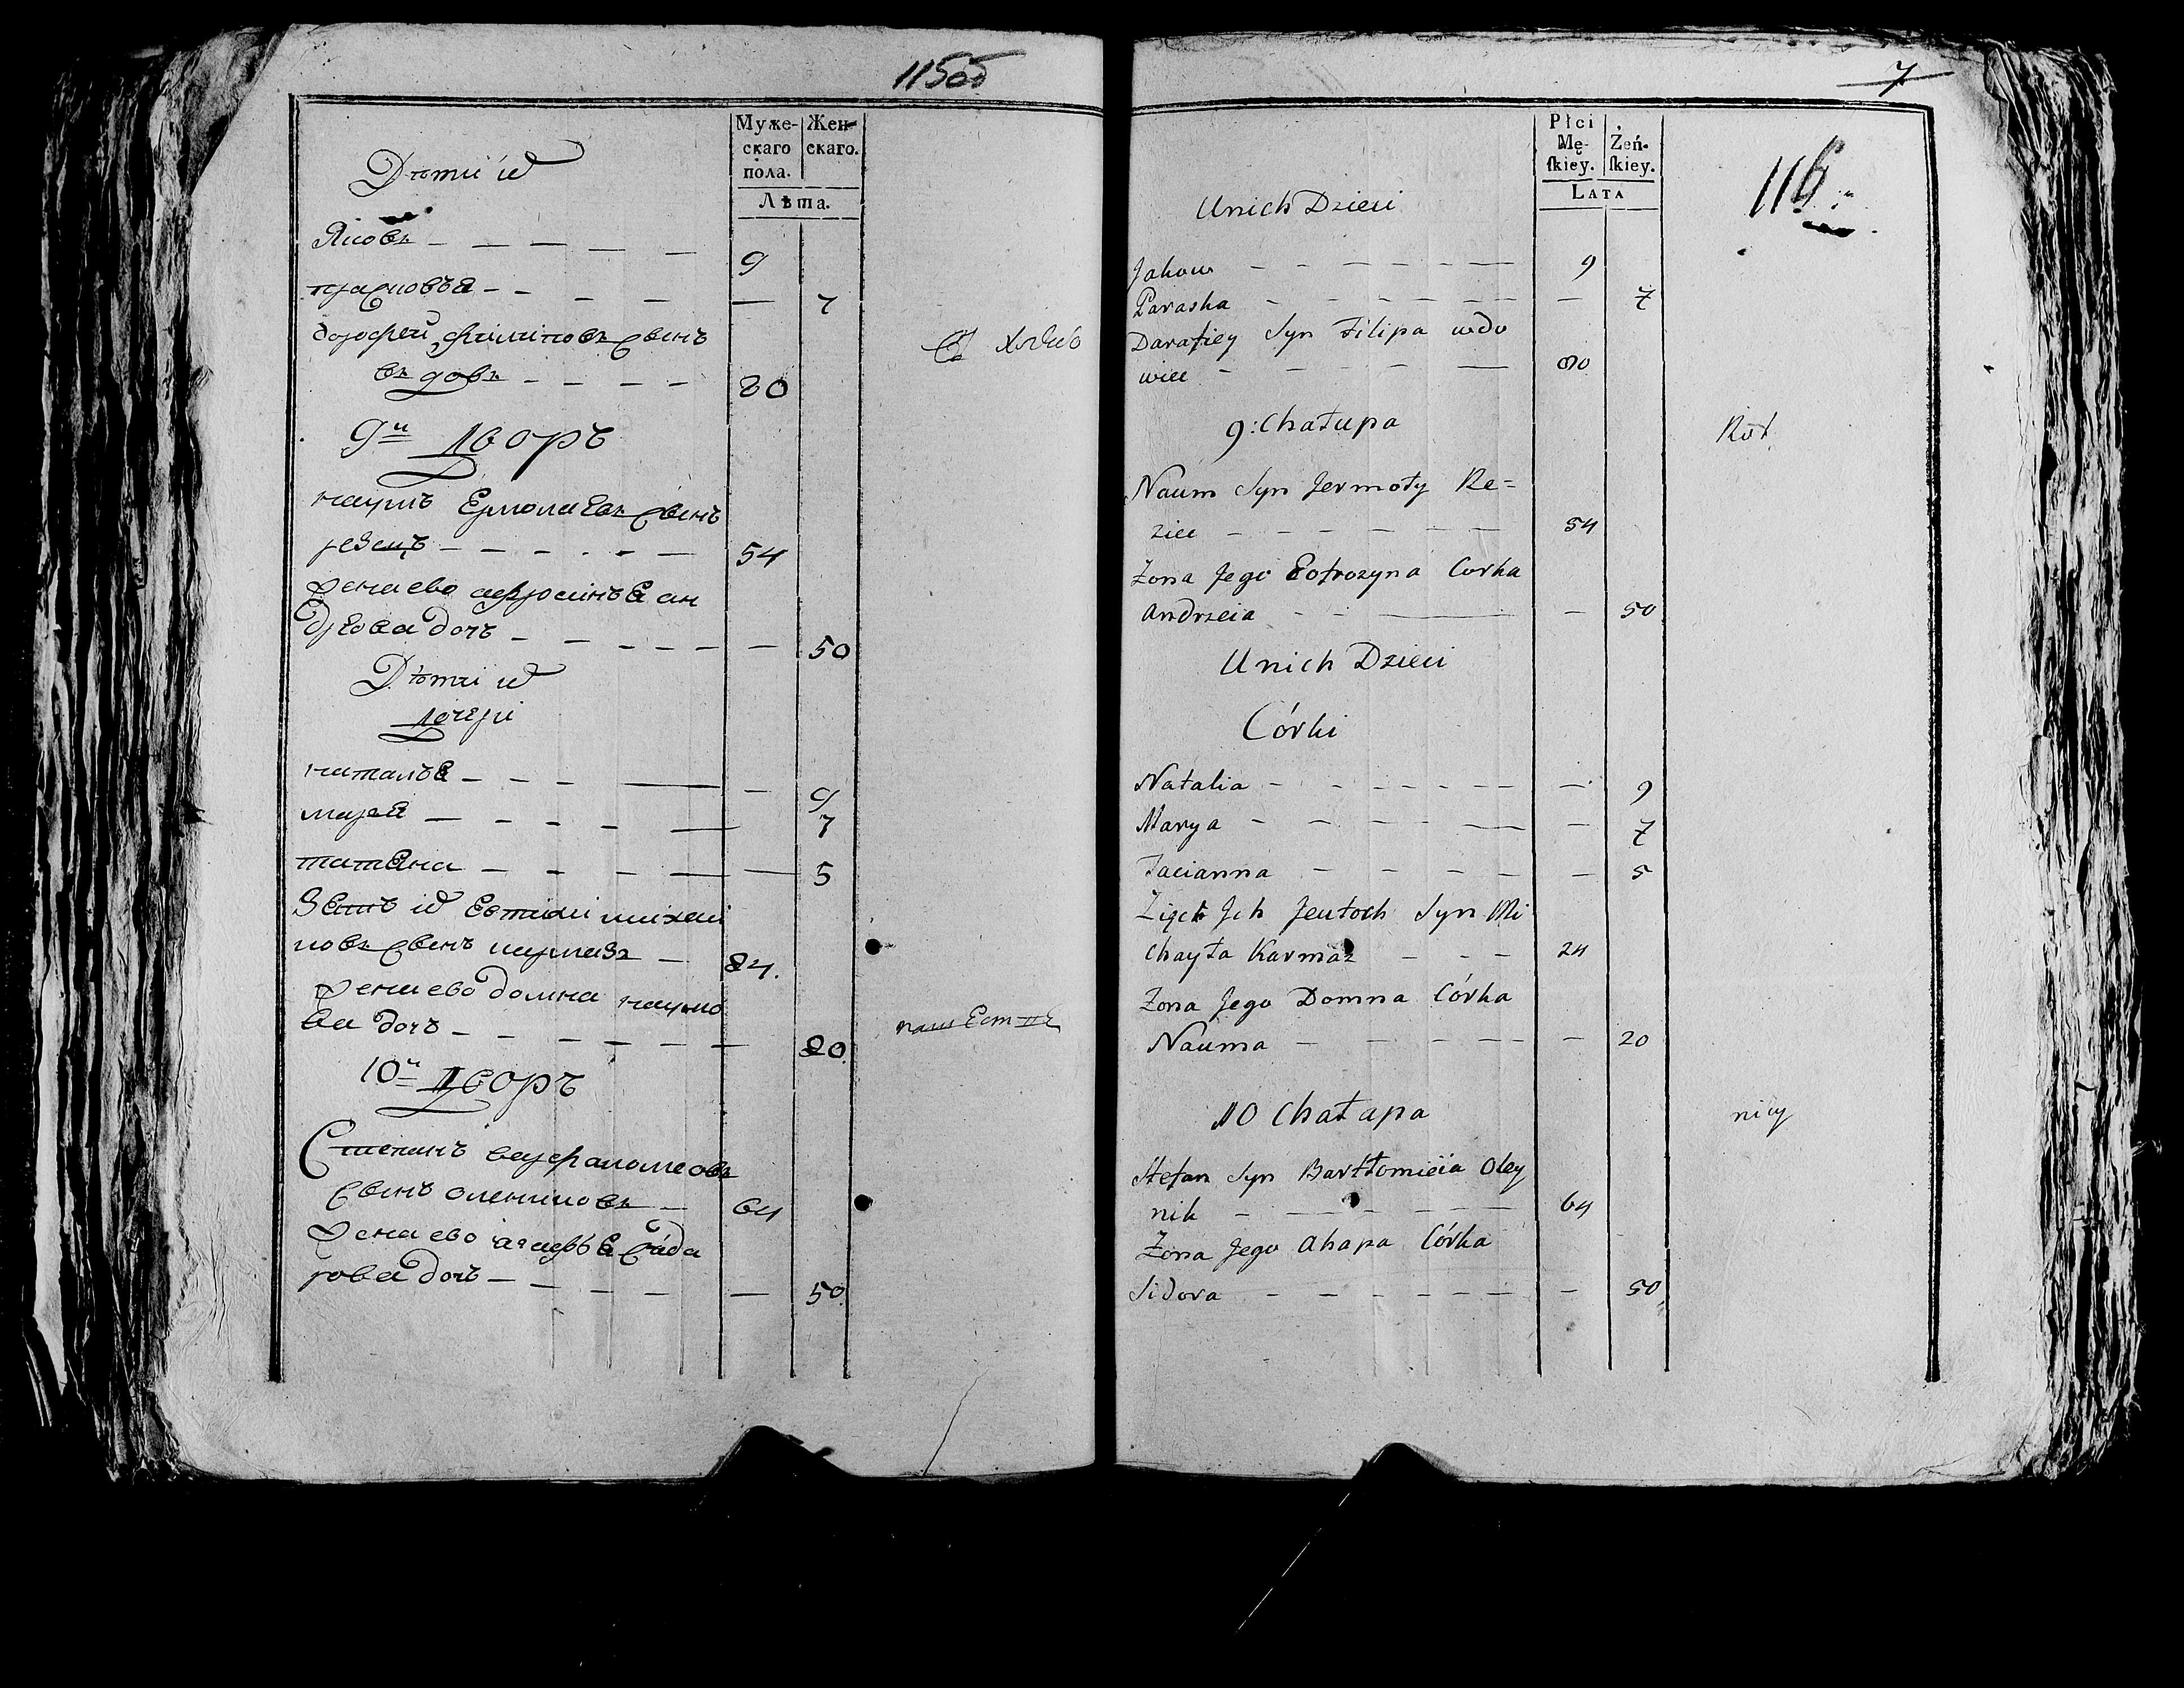 115об
Муже-
скаго
пола.
Жен-
скаго.
Лѣта.
Дѣти ихъ
Яковъ 9
парасковья 7
дорофей филиповъ сынъ
вдовъ 80
9й Дворъ
наумъ Ермолаевъ сынъ
резецъ 54
жена ево афросинья ан
дреева дочь 50
Дѣти ихъ
дочери
наталья 9
марья 7
татяна 5
зять ихъ Евтихи михаи
ловъ сынъ кармазъ 24.
жена ево домна наумо
ва дочь 20.
10й Дворъ
Степанъ варфаломеовъ
сынъ олейниковъ 64
жена ево агафья сидо
рова дочь 50.
7
116
Płci
Mę-
ſkiey.
Żeń-
ſkiey.
LATA
Unich Dzieci
Jakow 9
Paraska 7
Darafiey Syn Filipa wdo
wiec 80
9: Chałupa
Naum Syn Jermoły Re=
ziec 54
Zona Jego Eofrozyna Corka
Andrzeia 50
Unich Dzieci
Córki
Natalia 9
Marya 7
Tacianna 5
Zięć Ich Jeutoch Syn Mi
chayła Karmaz 24
Zona Jego Domna Córka
Nauma 20
10 Chałupa
Stefan Syn Bartłomieia Oley
nik 64
Zona Jego Ahapa Córka
Sidora 50